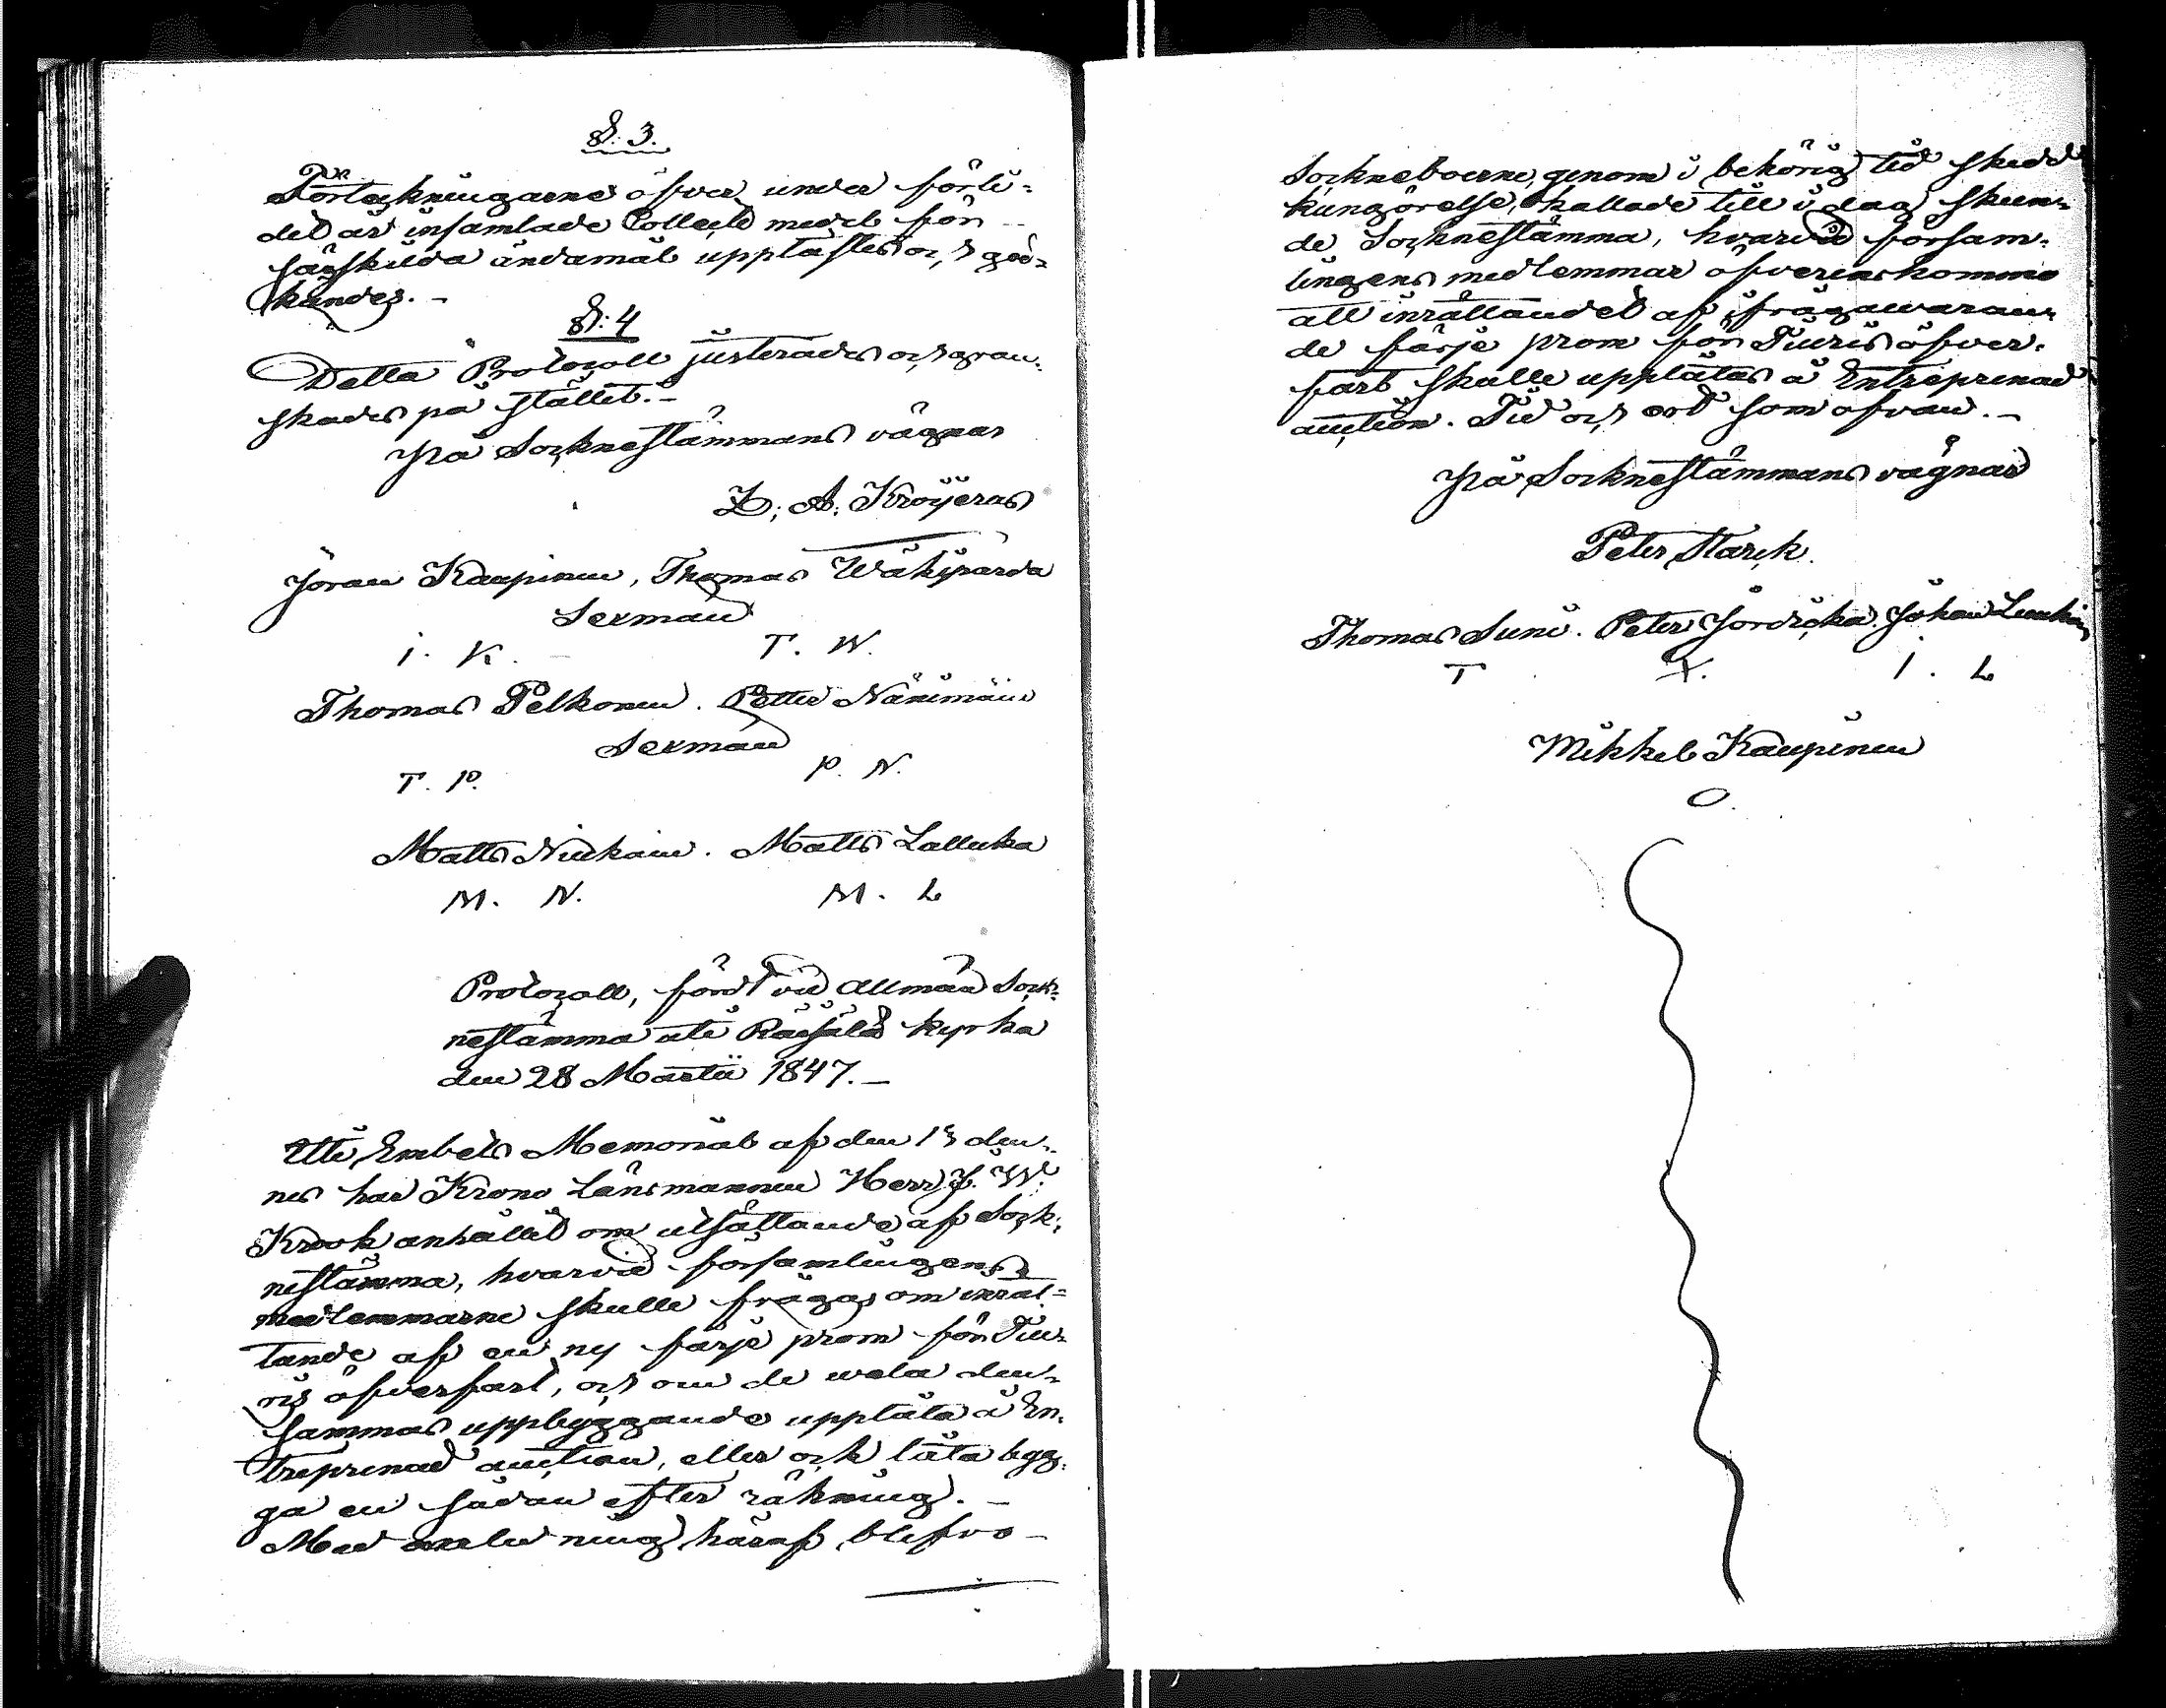 §: 3.
Förteckningarne öfver under förli-
det år insamlade Collect medel för
särskilda ändamål upplästes och god-
kändes. -
§: 4
Detta Protocoll justerades och gran-
skades på stället. -
På Socknestämmans vägnar
Z: A: Kröijerus
Jöran Kaupinen, Thomas Wäkiparda
Sexman
i. K. T. W.
Thomas Pelkonen. Petter Nänimäin
Sexman
T. P. P. N.
Matts Niukain. Matts Lalluka
M. N. M. L
Protocoll, fördt vid allmän Sock-
nestämma uti Räisälä kyrka
den 28 Martii 1847. -
Uti Embets Memorial af den 15 den-
nes har Krono Länsmannen Herr J. W.
Krook anhållit om utsättande af Sock-
nestämma, hvarvid församlingens
medlemmarne skulle frågas om inrät-
tande af en ny färje prom för Tiu-
ris öfverfart, och om de wela den-
sammas uppbyggande upplåta å En-
treprenad auction, eller ock låta byg-
ga en sådan efter räkning. -
Med anledning häraf blefvo -
Sockneboerne, genom i behörig tid skedd
kungörelse, kallade till i dag skeen-
de Socknestämma, hvarvid försam-
lingens medlemmar öfverenskommo
att inrättandet af ifrågawaran-
de färje prom för Tiuris öfver-
fart skulle upplåtas å Entreprenad
auction. Tid och ort som ofvan. -
På Socknestämmans vägnar
Peter Starck.
Thomas Suni. Peter Jördikä. Johan Lunkin
T X. i. L
Mikkel Kaupinen
O.